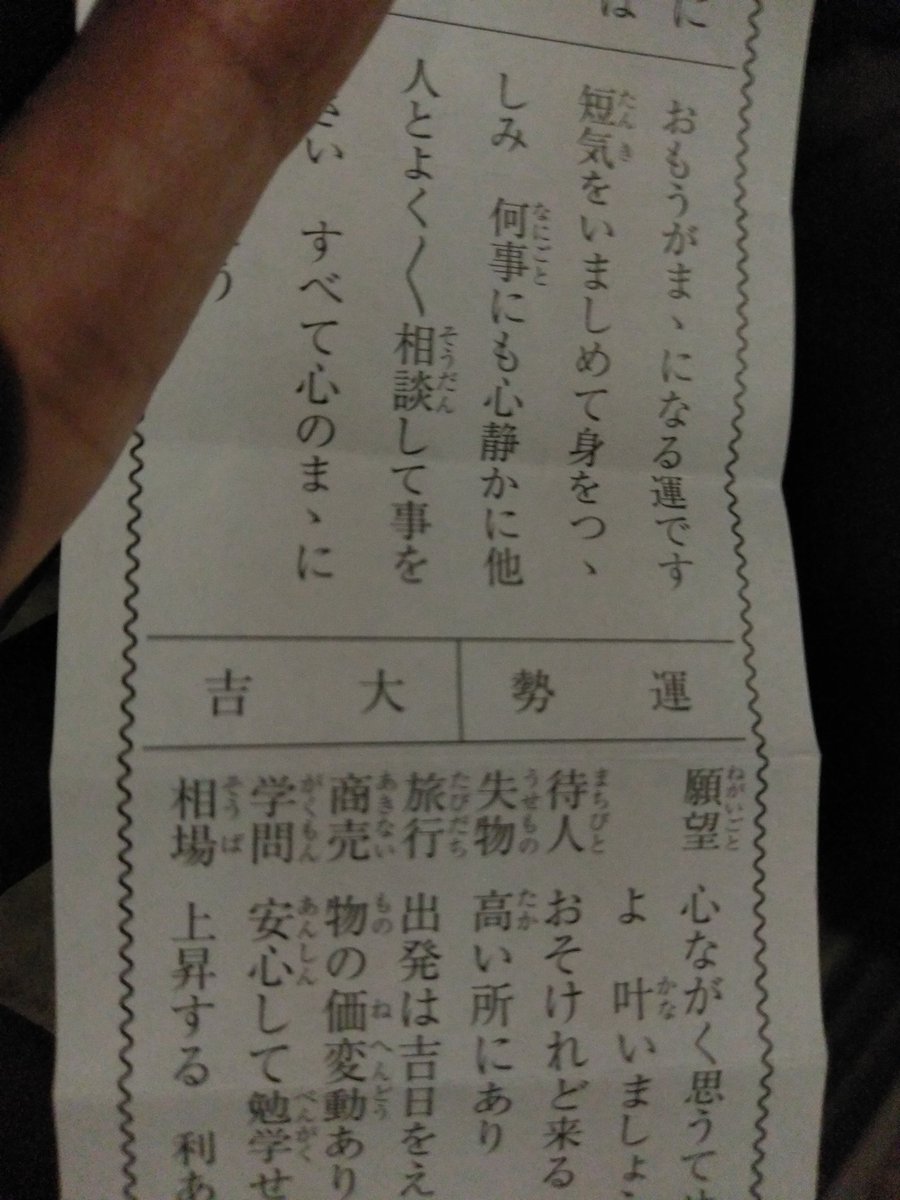 に
は
おもうがまゝになる運です
短気をいましめて身をつゝ
しみ 何事にも心静かに他
人とよく〳〵相談して事を
さい すべて心のまゝに
う
運勢 大吉
願望 心ながく思うてせ
よ 叶いましょう
待人 おそけれど来る
失物 高い所にあり
旅行 出発は吉日をえ
商売 物の価変動あり
学問 安心して勉学せ
相場 上昇する 利あ